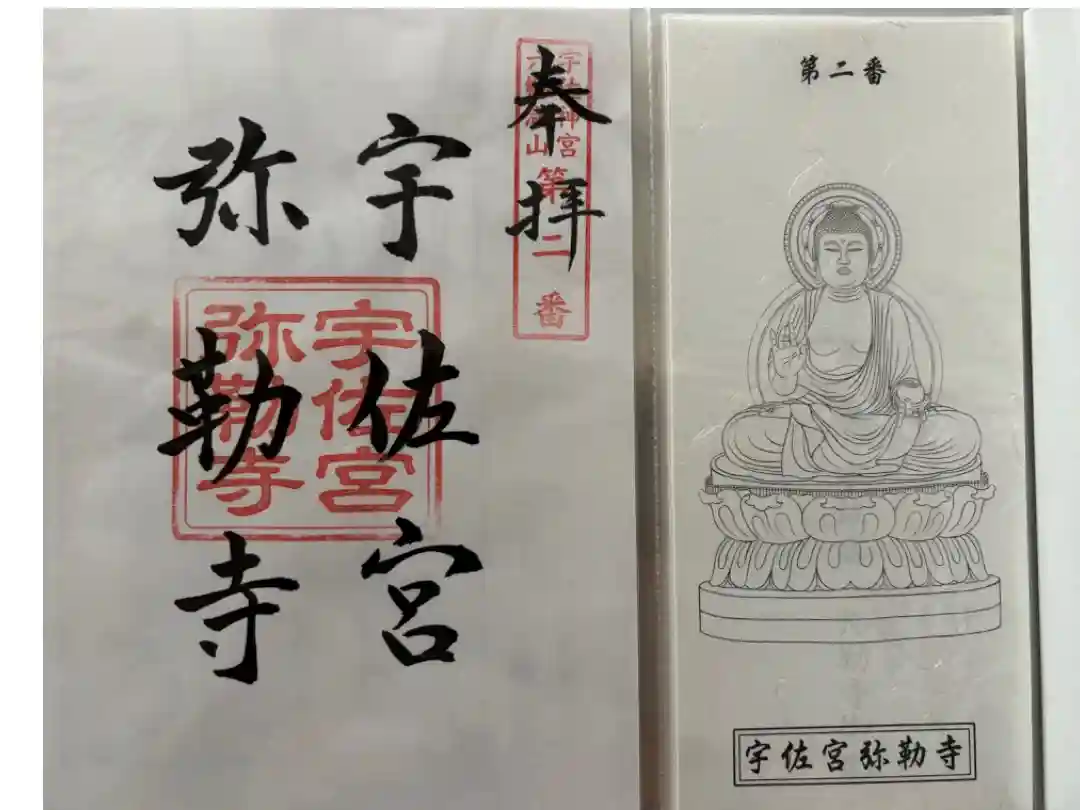 奉拝
宇佐神宮
六郷満山
第二番
宇佐宮
弥勒寺
宇佐宮
弥勒寺
第二番
宇佐宮弥勒寺